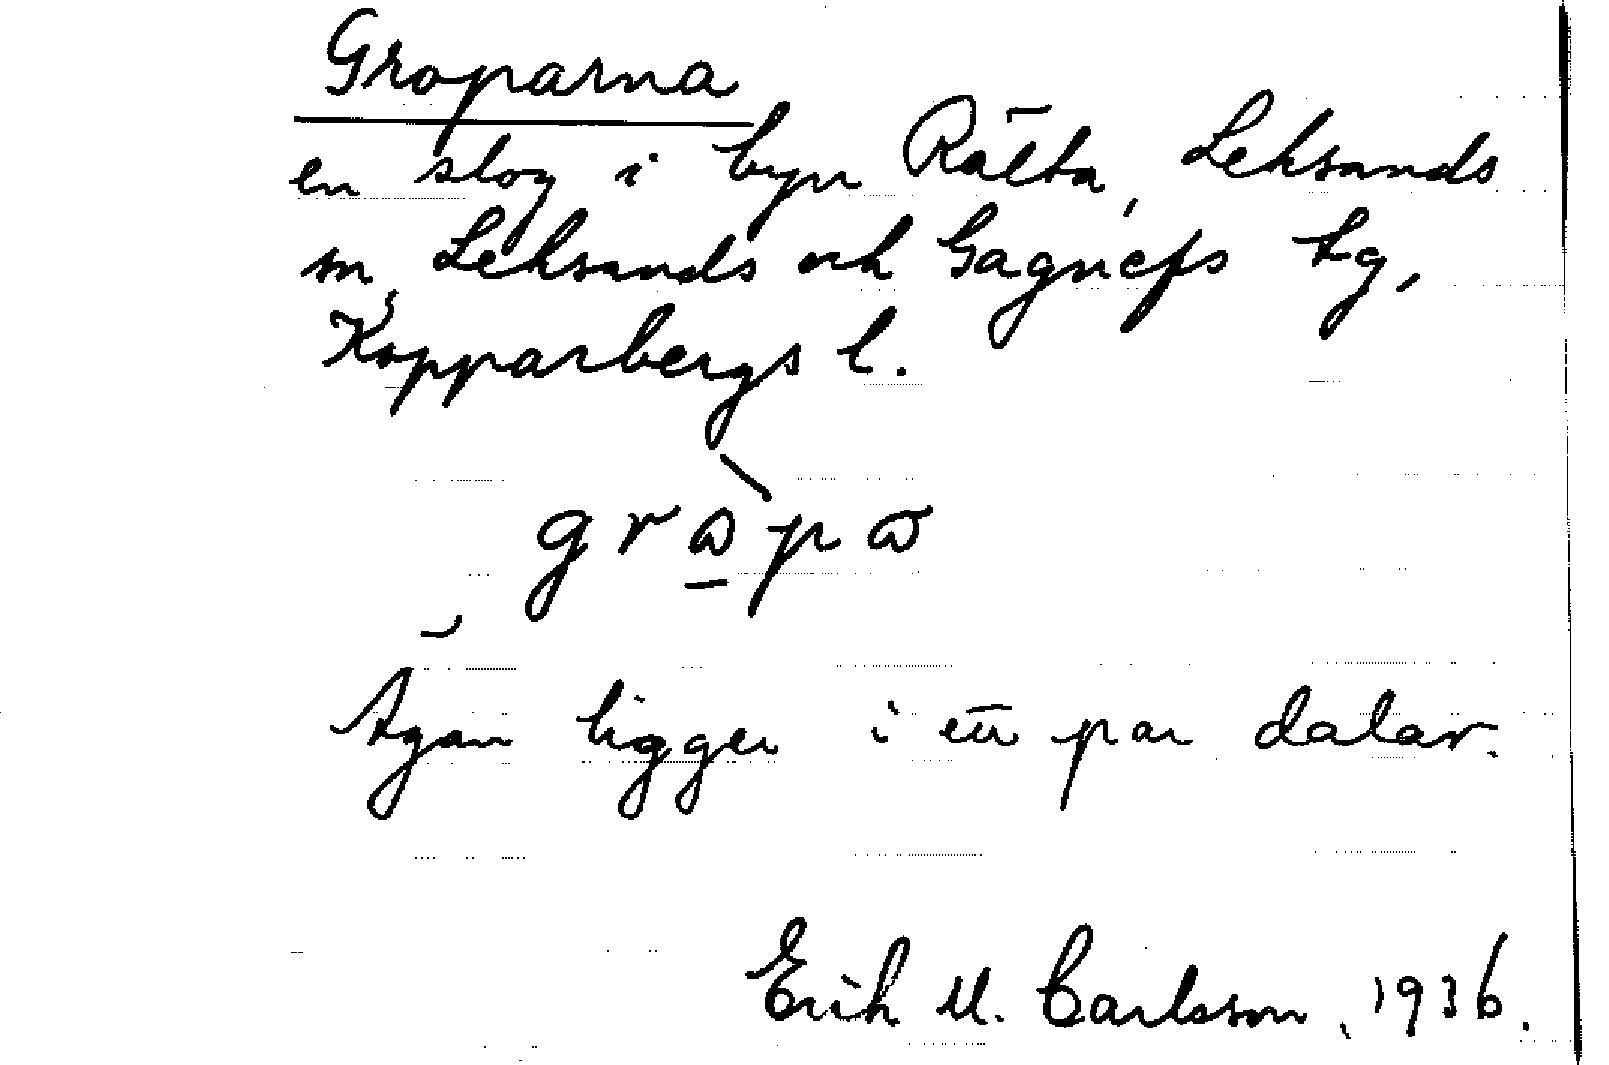 Groparna
en slog i byn Rälta, Leksands
sn, Leksands och Gagnefs tg,
Kopparbergs l.
Ägan ligger i ett par dalar.
Erik M. Carlsson, 1936.